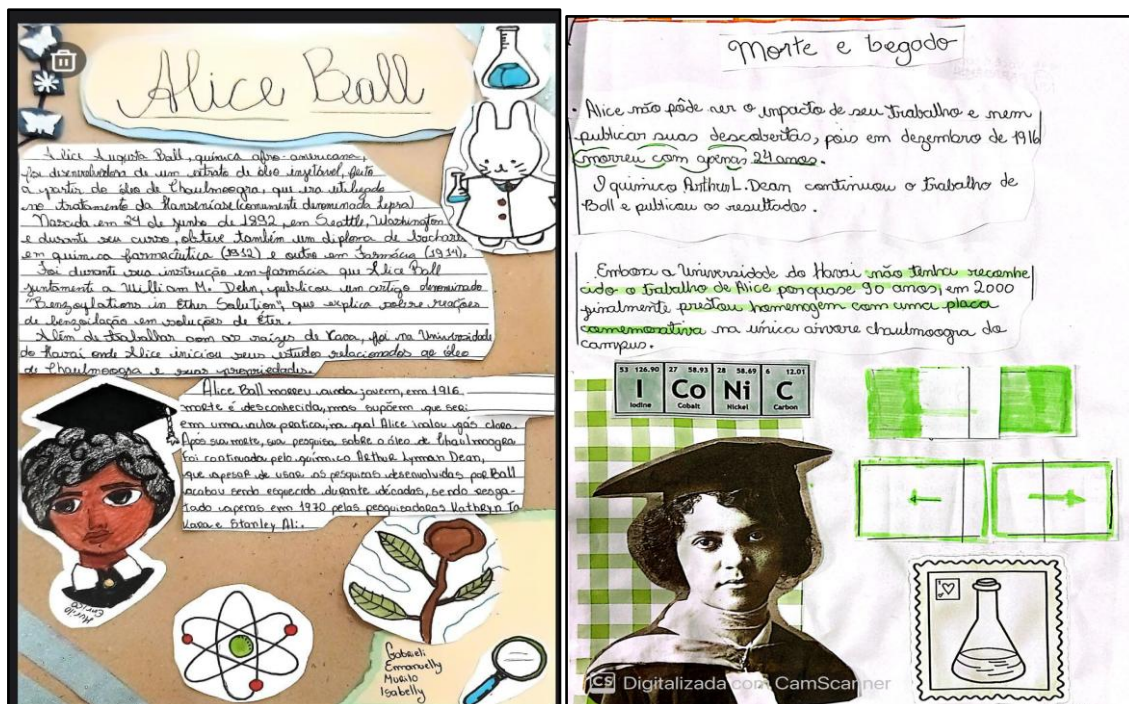 Alice Ball
Alice Augusta Ball, química afro-americana,
foi desenvolvedora de um extrato de óleo injetável, feito
a partir do óleo de Chaulmoogra, que era utilizado
no tratamento da Hanseníase (comumente denominada lepra)
Nascida em 24 de junho de 1892, em Seattle, Washington
e durante seu curso, obteve também um diploma de bachare
em química farmacêutica (1912) e outro em Farmácia (1914).
Foi durante sua instrução em farmácia que Alice Ball
juntamente a William M. Dehn, publicou um artigo denominado
"Benzoylations in Ether Solution", que explica sobre reações
de benzoilação em soluções de Éter.
Além de trabalhar com as raízes de Kava, foi na Universidade
do Havaí onde Alice iniciou seus estudos relacionados ao óleo
de Chaulmoogra e suas propriedades.
Alice Ball morreu ainda jovem, em 1916
morte é desconhecida, mas supõem que sej
em uma aula pratica, na qual Alice inalou gás cloro.
Após sua morte, sua pesquisa sobre o óleo de Chaulmoogra
foi continuada pelo químico Arthur Lyman Dean,
que apesar de usar as pesquisas desenvolvidas por Ball
acabou sendo esquecido durante décadas, sendo resga-
tado apenas em 1970 pelas pesquisadoras Kathryn Ta
kara e Stanley Ali.
Murilo
Enrico
Gabrieli
Emmanuelly
Murilo
Isabelly
Morte e Legado
. Alice não pôde ver o impacto de seu trabalho e nem
publicar suas descobertas, pois em dezembro de 1916
morreu com apenas 24 anos.
O químico Arthur L. Dean continuou o trabalho de
Ball e publicou os resultados.
Embora a Universidade do Havaí não tenha reconhe
cido o trabalho de Alice por quase 90 anos, em 2000
finalmente prestou homenagem com uma placa
comemorativa na única árvore chaulmoogra do
campus.
53 126.90 27 58.93 28 58.69 6 12.01
I Co Ni C
Iodine Cobalt Nickel Carbon
CS Digitalizada com CamScanner